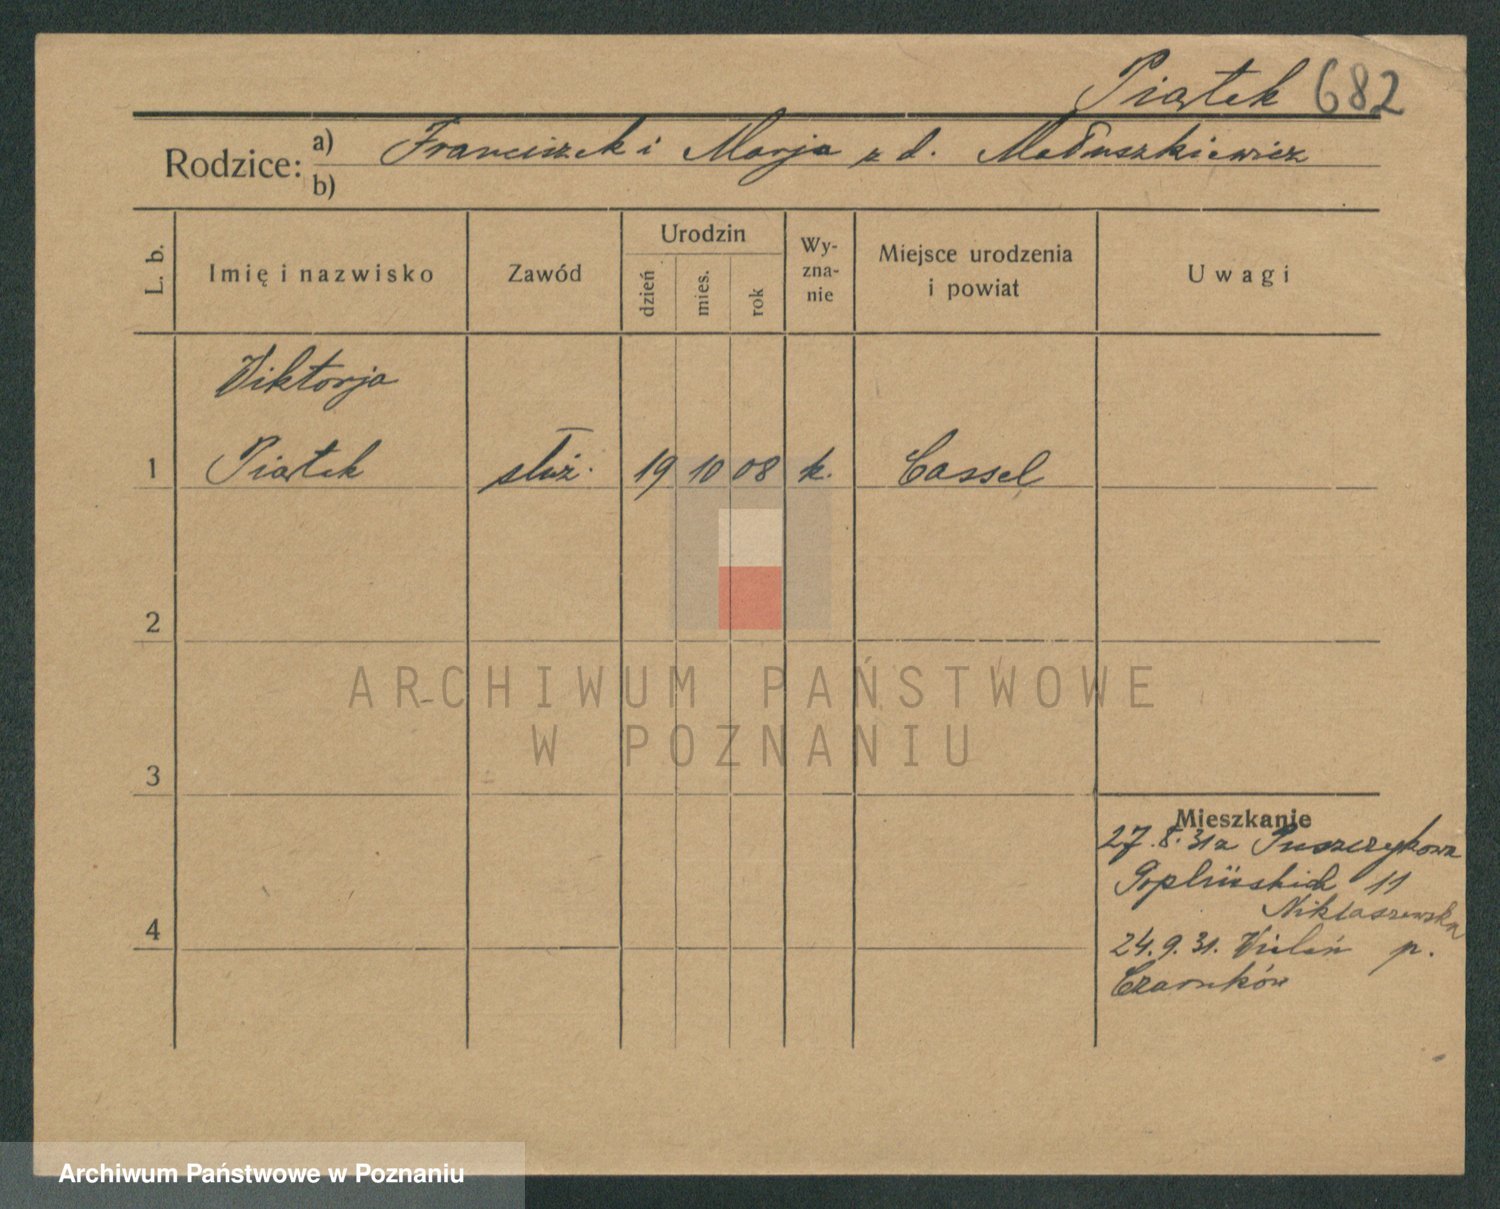 Piątek 682
Rodzice: a) Franciszek i Marja z d. Matuszkiewicz
b)
L. b.
Imię i nazwisko
Zawód
Urodzin
dzień
mies.
rok
Wy-
zna-
nie
Miejsce urodzenia
i powiat
Uwagi
Wiktorja
1 Piątek służ. 19 10 08 k. Cassel
2
3
4
Mieszkanie
27.8.31 z Puszczykowa
Goplińskich 11
Niklaszewska
24.9.31. Wieleń p.
Czarnków
ARCHIWUM PAŃSTWOWE
W POZNANIU
Archiwum Państwowe w Poznaniu